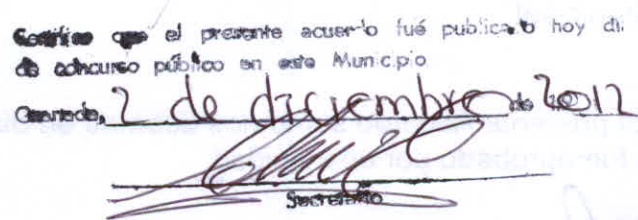 Certifico que el presente acuerdo fué publicado hoy día
de concurso público en este Municipio
Granada, 2 de diciembre de 2012
Secretario